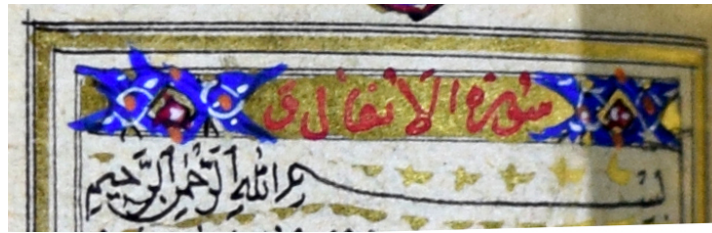 سورة الانفال ق
بسم الله الرحمن الرحيم